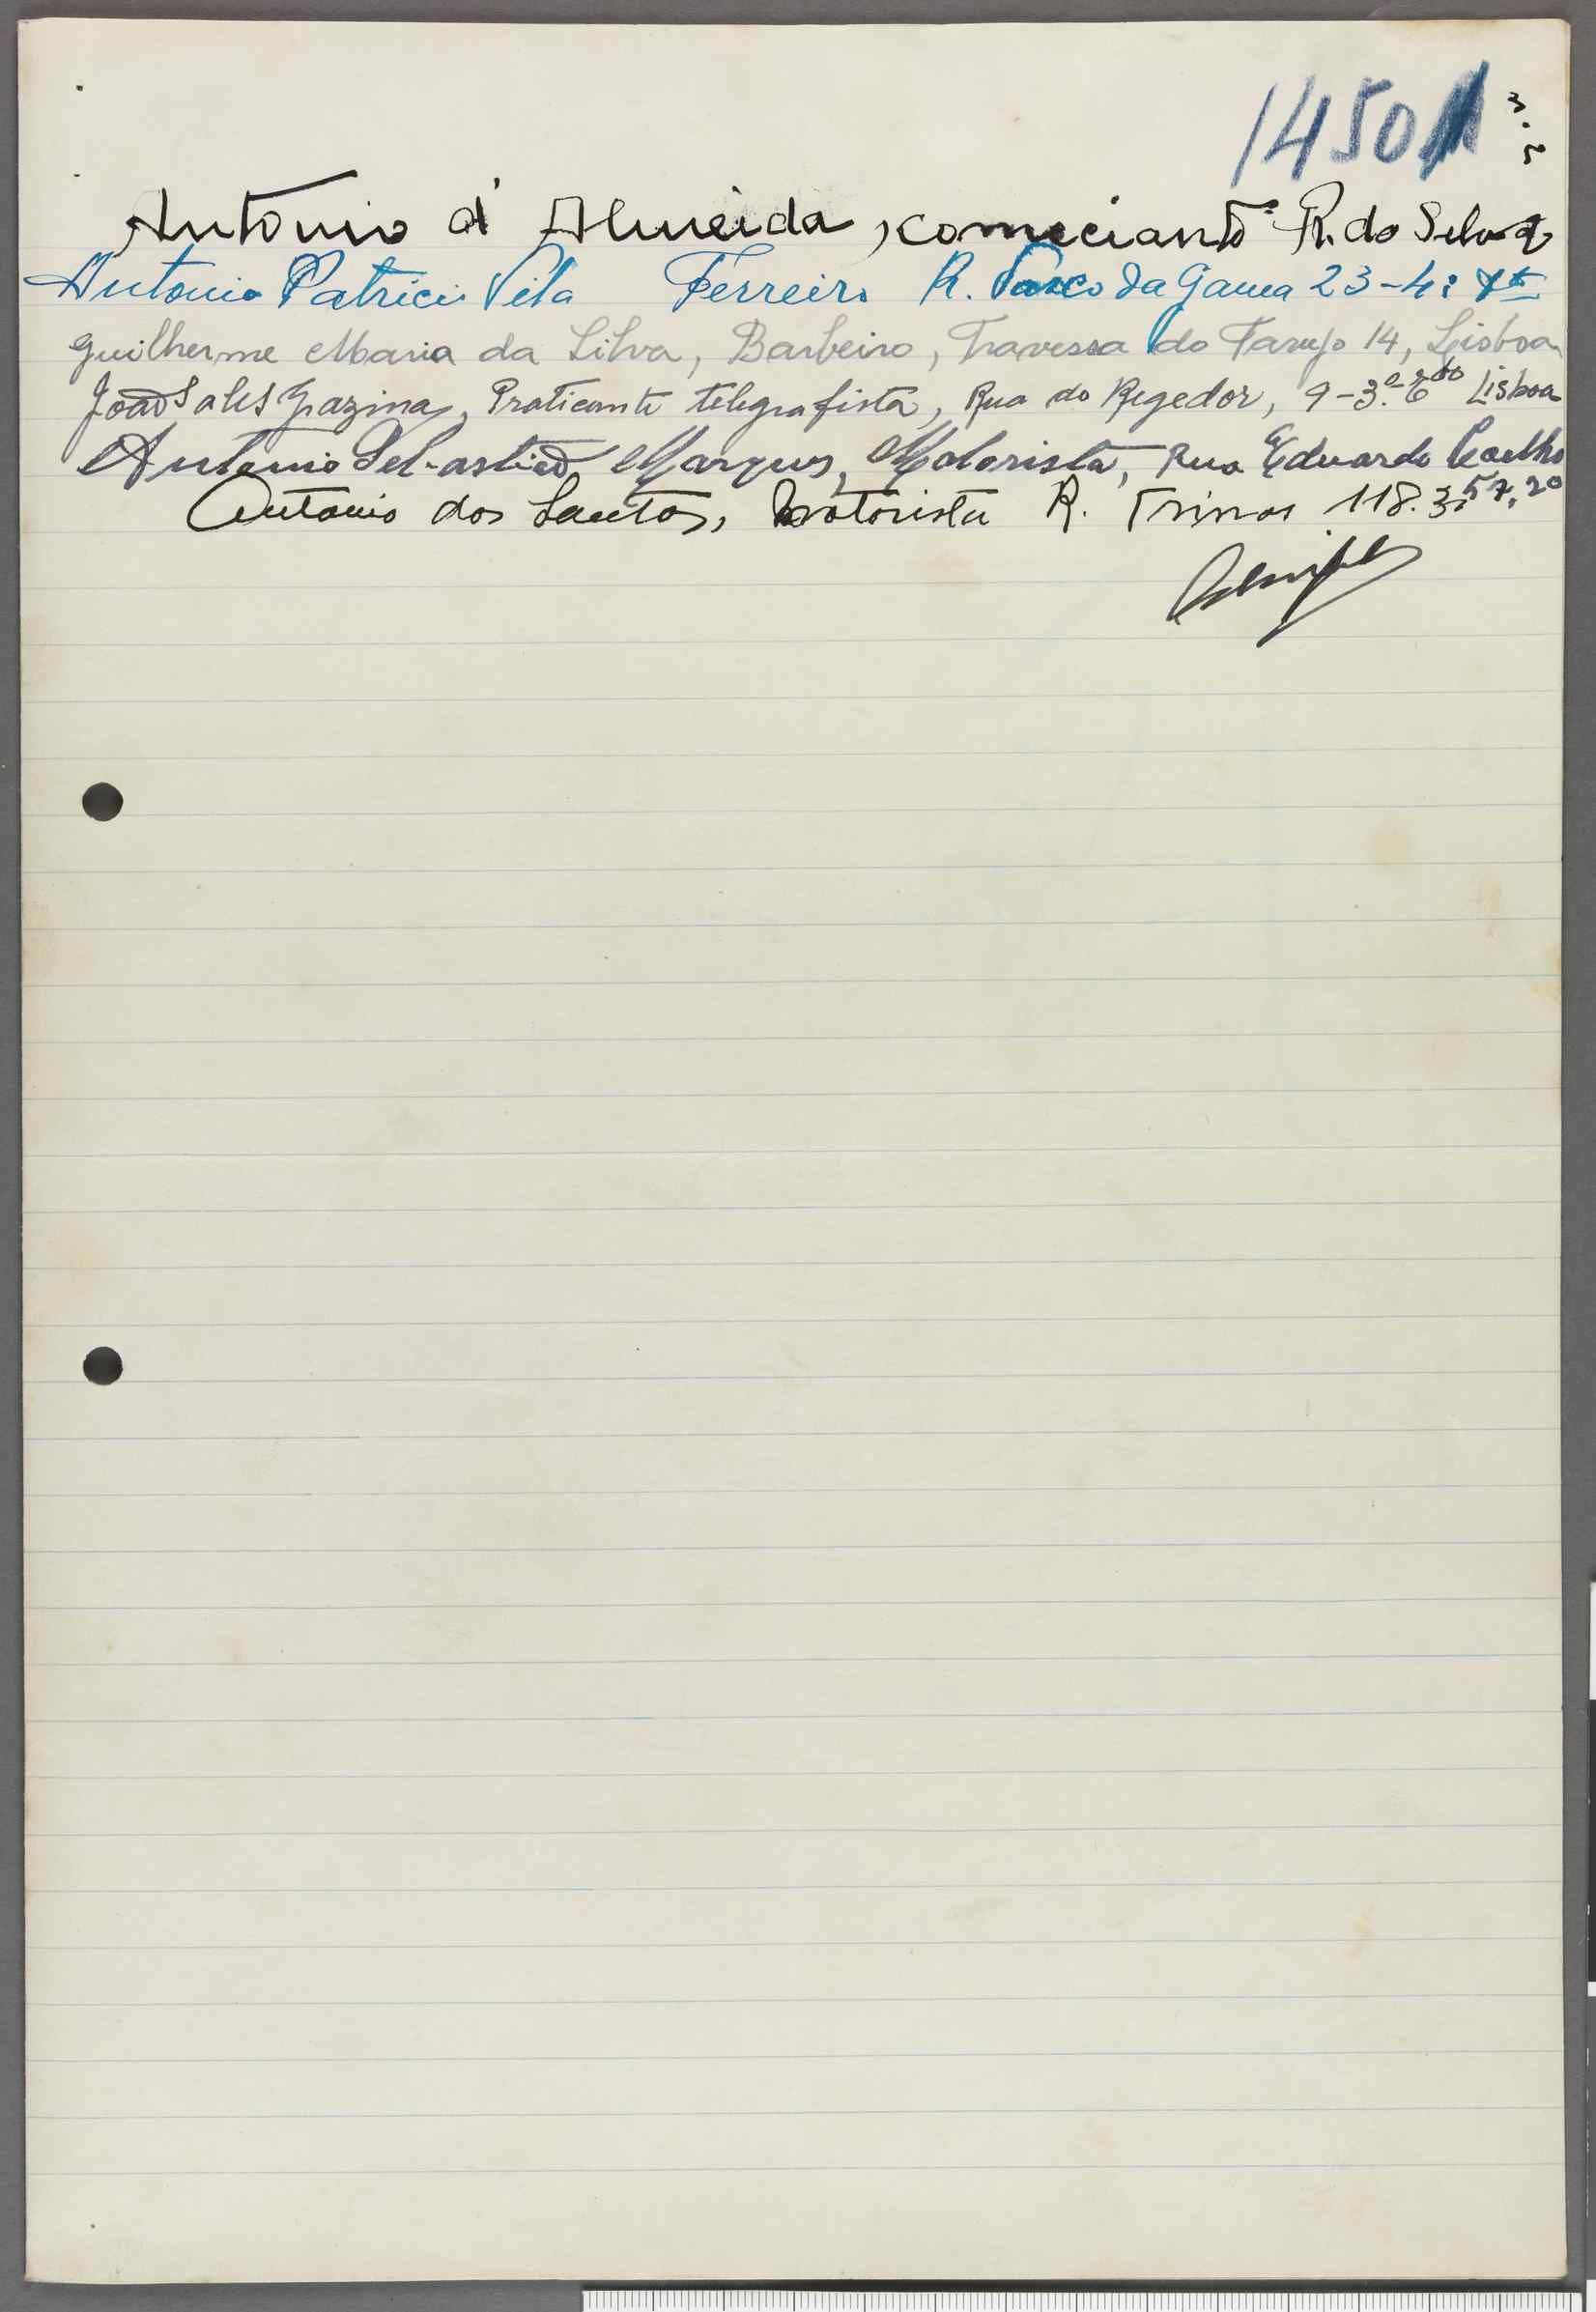 1450
Antonio d'Almeida, comeciante R. do
Antonio Patricio Vila Ferreiro R. Vasco da Gama 23-4º
Guilherme Maria da Silva, Barbeiro, Travessa do 14, Lisboa
João Sales Grazina, Praticante telegrafista, Rua do Regedor, 9-3.º Lisboa
Antonio Sebastião Marques, Motorista, Rua Eduardo Coelho
Antonio dos Santos, motorista R. Trinas 118.3º